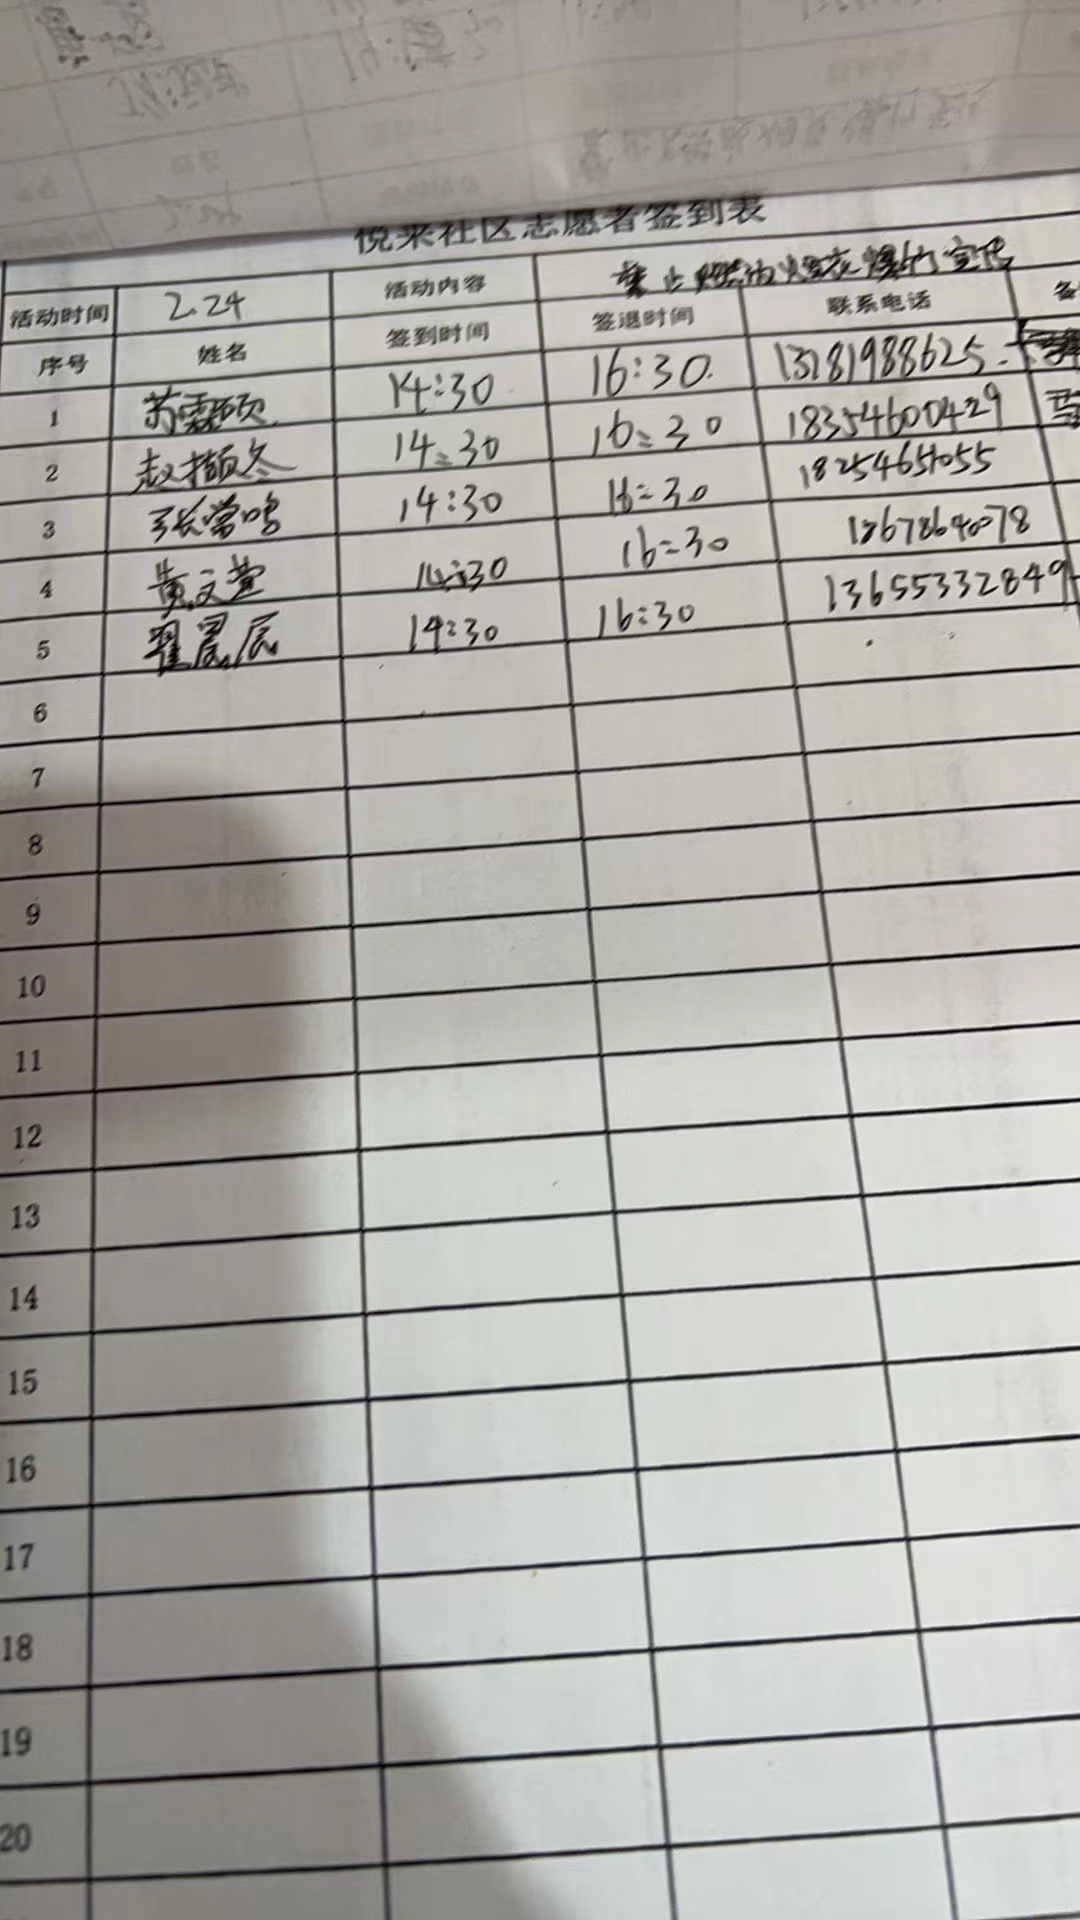 悦来社区志愿者签到表
活动时间 2.24 活动内容 禁止燃放烟花爆竹宣传
序号 姓名 签到时间 签退时间 联系电话
1 苏霖硕 14:30 16:30 13281988625
2 赵撷冬 14:30 16:30 18354600429
3 张常鸣 14:30 16:30 18254651055
4 黄文萱 14:30 16:30 18678640078
5 翟晨辰 14:30 16:30 13655332849
6
7
8
9
10
11
12
13
14
15
16
17
18
19
20